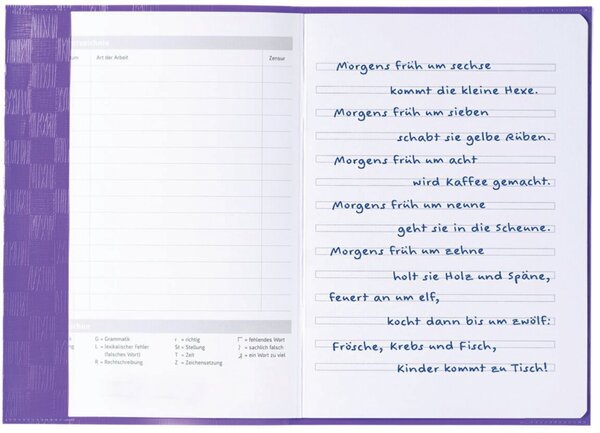 Art der Arbeit
Zensur
G = Grammatik
L = lexikalischer Fehler
(falsches Wort)
R = Rechtschreibung
r = richtig
St = Stellung
T = Zeit
Z = Zeichensetzung
= fehlendes Wort
= sachlich falsch
= ein Wort zu viel
Morgens früh um sechse
kommt die kleine Hexe.
Morgens früh um sieben
schabt sie gelbe Rüben.
Morgens früh um acht
wird Kaffee gemacht.
Morgens früh um neune
geht sie in die Scheune.
Morgens früh um zehne
holt sie Holz und Späne,
feuert an um elf,
kocht dann bis um zwölf:
Frösche, Krebs und Fisch,
Kinder kommt zu Tisch!